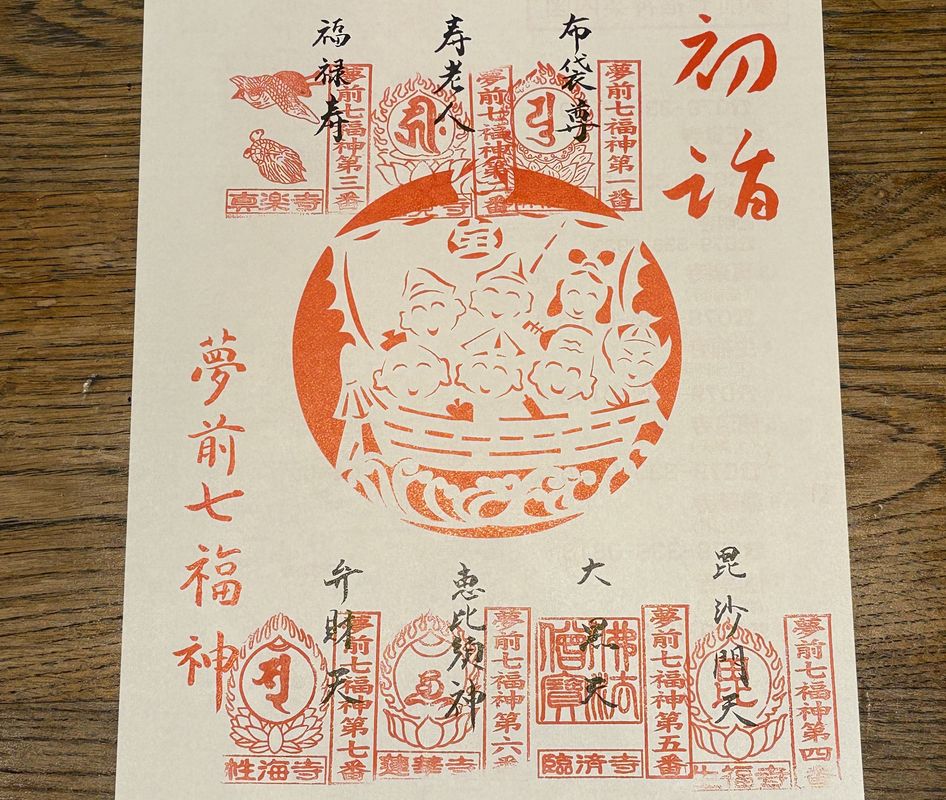 初詣
布袋尊
夢前七福神第一番
寿老人
夢前七福神第二番
福禄寿
夢前七福神第三番
真楽寺
宝
毘沙門天
夢前七福神第四番
生福寺
大黒天
夢前七福神第五番
佛法僧寶
臨済寺
恵比須神
夢前七福神第六番
蓮華寺
弁財天
夢前七福神第七番
性海寺
夢前七福神